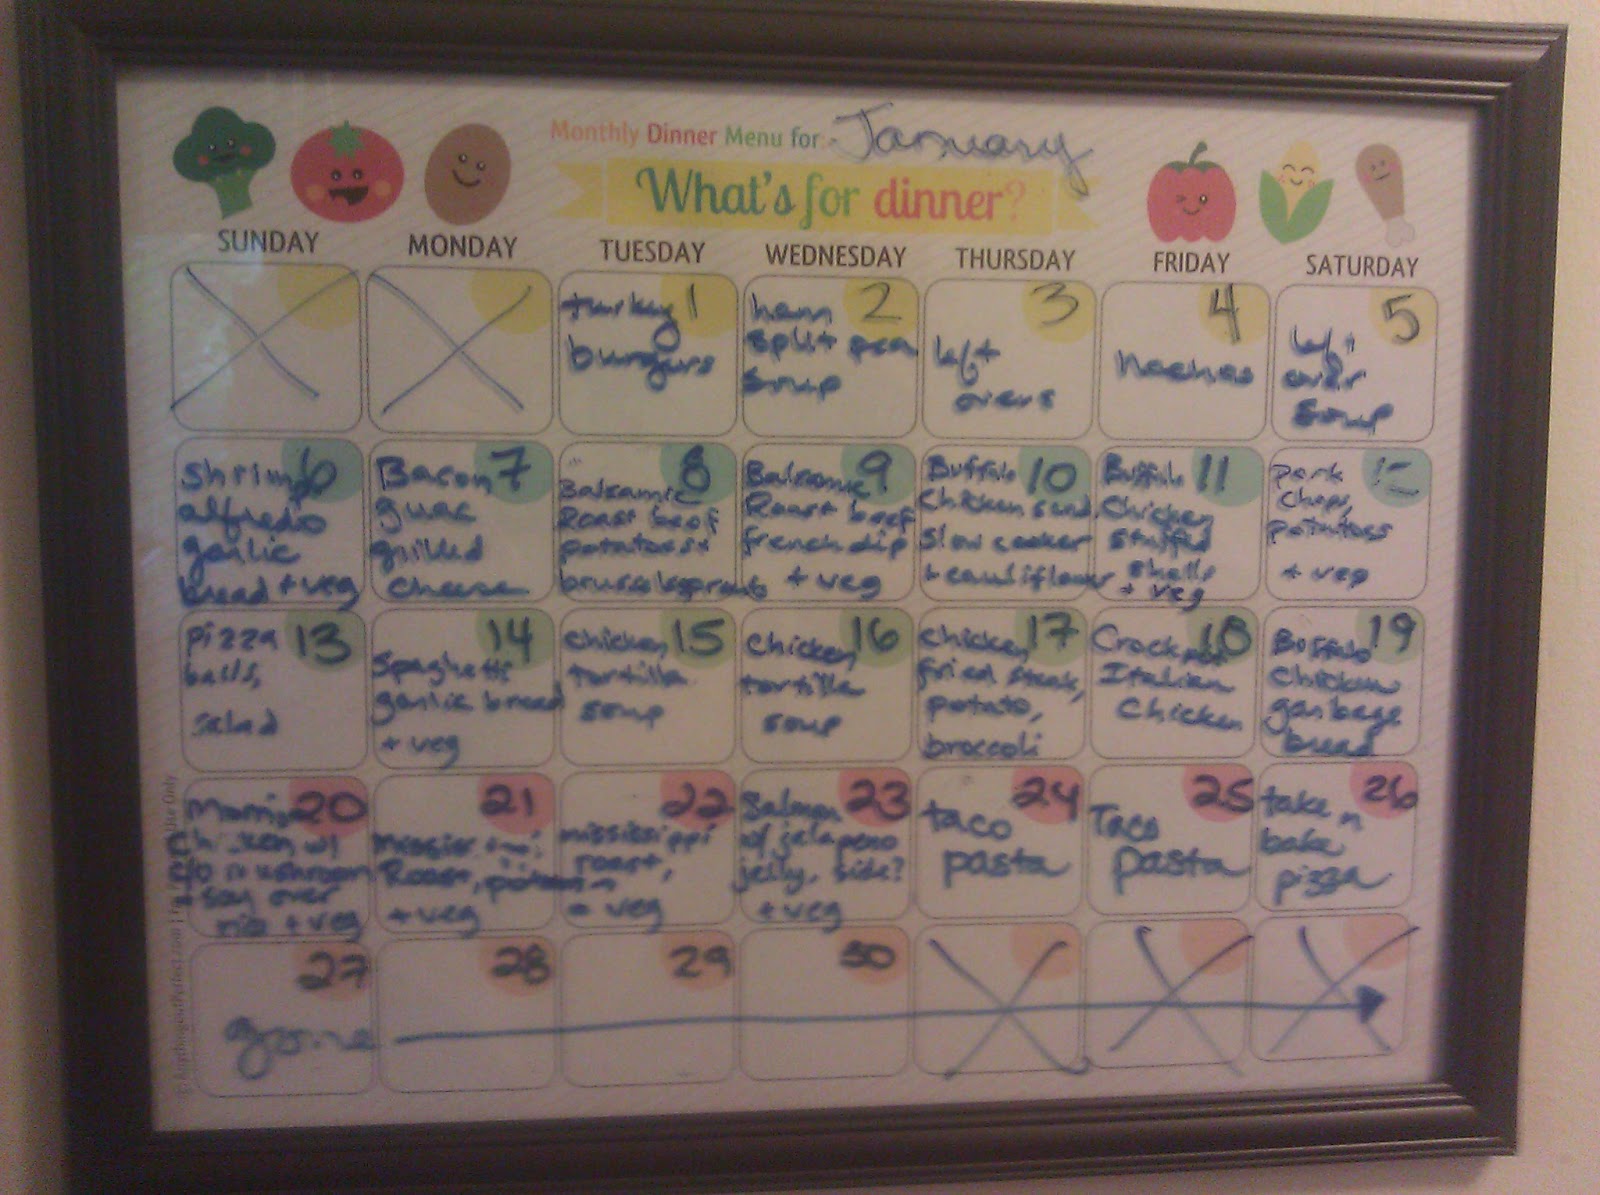 Monthly Dinner Menu for: January
What's for dinner?
SUNDAY MONDAY TUESDAY WEDNESDAY THURSDAY FRIDAY SATURDAY
1
turkey
burgers
2
ham
split pea
soup
3
left
overs
4
nachos
5
left
over
soup
6
shrimp
alfredo
garlic
bread + veg
7
Bacon
guac
grilled
cheese
8
Balsamic
Roast beef
potatoes +
brussel sprouts
9
Balsamic
Roast beef
french dip
+ veg
10
Buffalo
Chicken sand.
slow cooker
+ cauliflower
11
Buffalo
Chicken
stuffed
shells
+ veg
12
pork
chops,
potatoes
+ veg
13
pizza
balls,
salad
14
Spaghetti
garlic bread
+ veg
15
chicken
tortilla
soup
16
chicken
tortilla
soup
17
chicken
fried steak,
potato,
broccoli
18
Crockpot
Italian
Chicken
19
Buffalo
chicken
garbage
bread
20
Chicken w/
c/o mushroom
+ soy over
rice + veg
21
mississippi
Roast,
+ veg
22
mississippi
roast,
+ veg
23
Salmon
w/ jalapeno
jelly, side?
+ veg
24
taco
pasta
25
Taco
pasta
26
take n
bake
pizza
27
gone
28
29
30